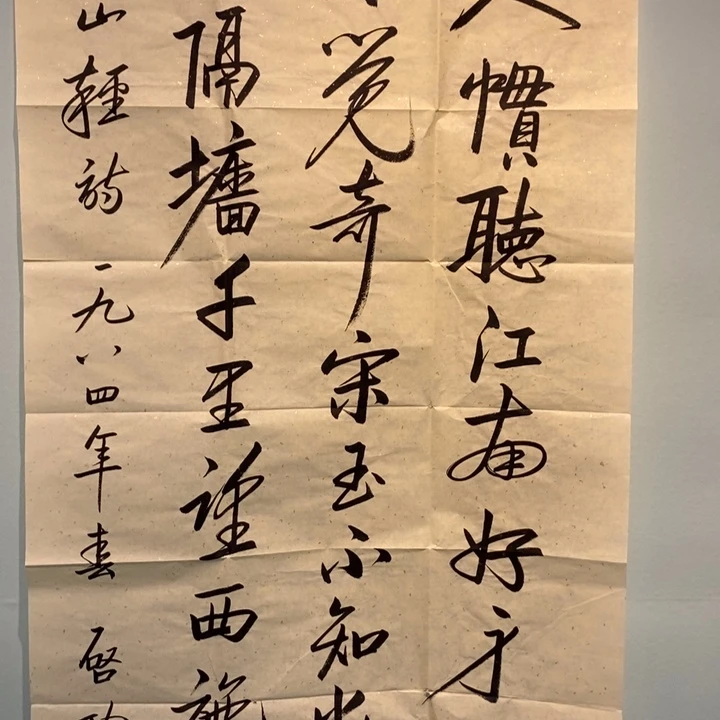 慣聽江南好才
覺奇宋玉不知
隔墻千里西施
山輕 一九八四年春 啓功